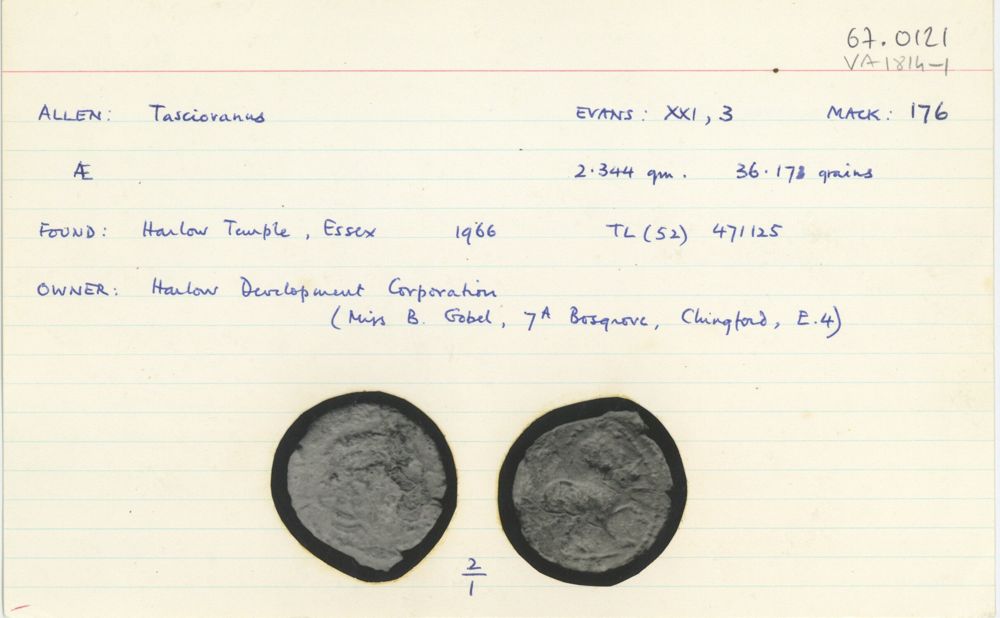 67.0121
VA1814-1
ALLEN: Tasciovanus EVANS: XXI, 3 MACK: 176
Æ 2.344 gm. 36.173 grains
FOUND: Harlow Temple, Essex 1966 TL (52) 471125
OWNER: Harlow Development Corporation
(Miss B. Gobel, 7A Bosgrove, Chingford, E.4)
2
1